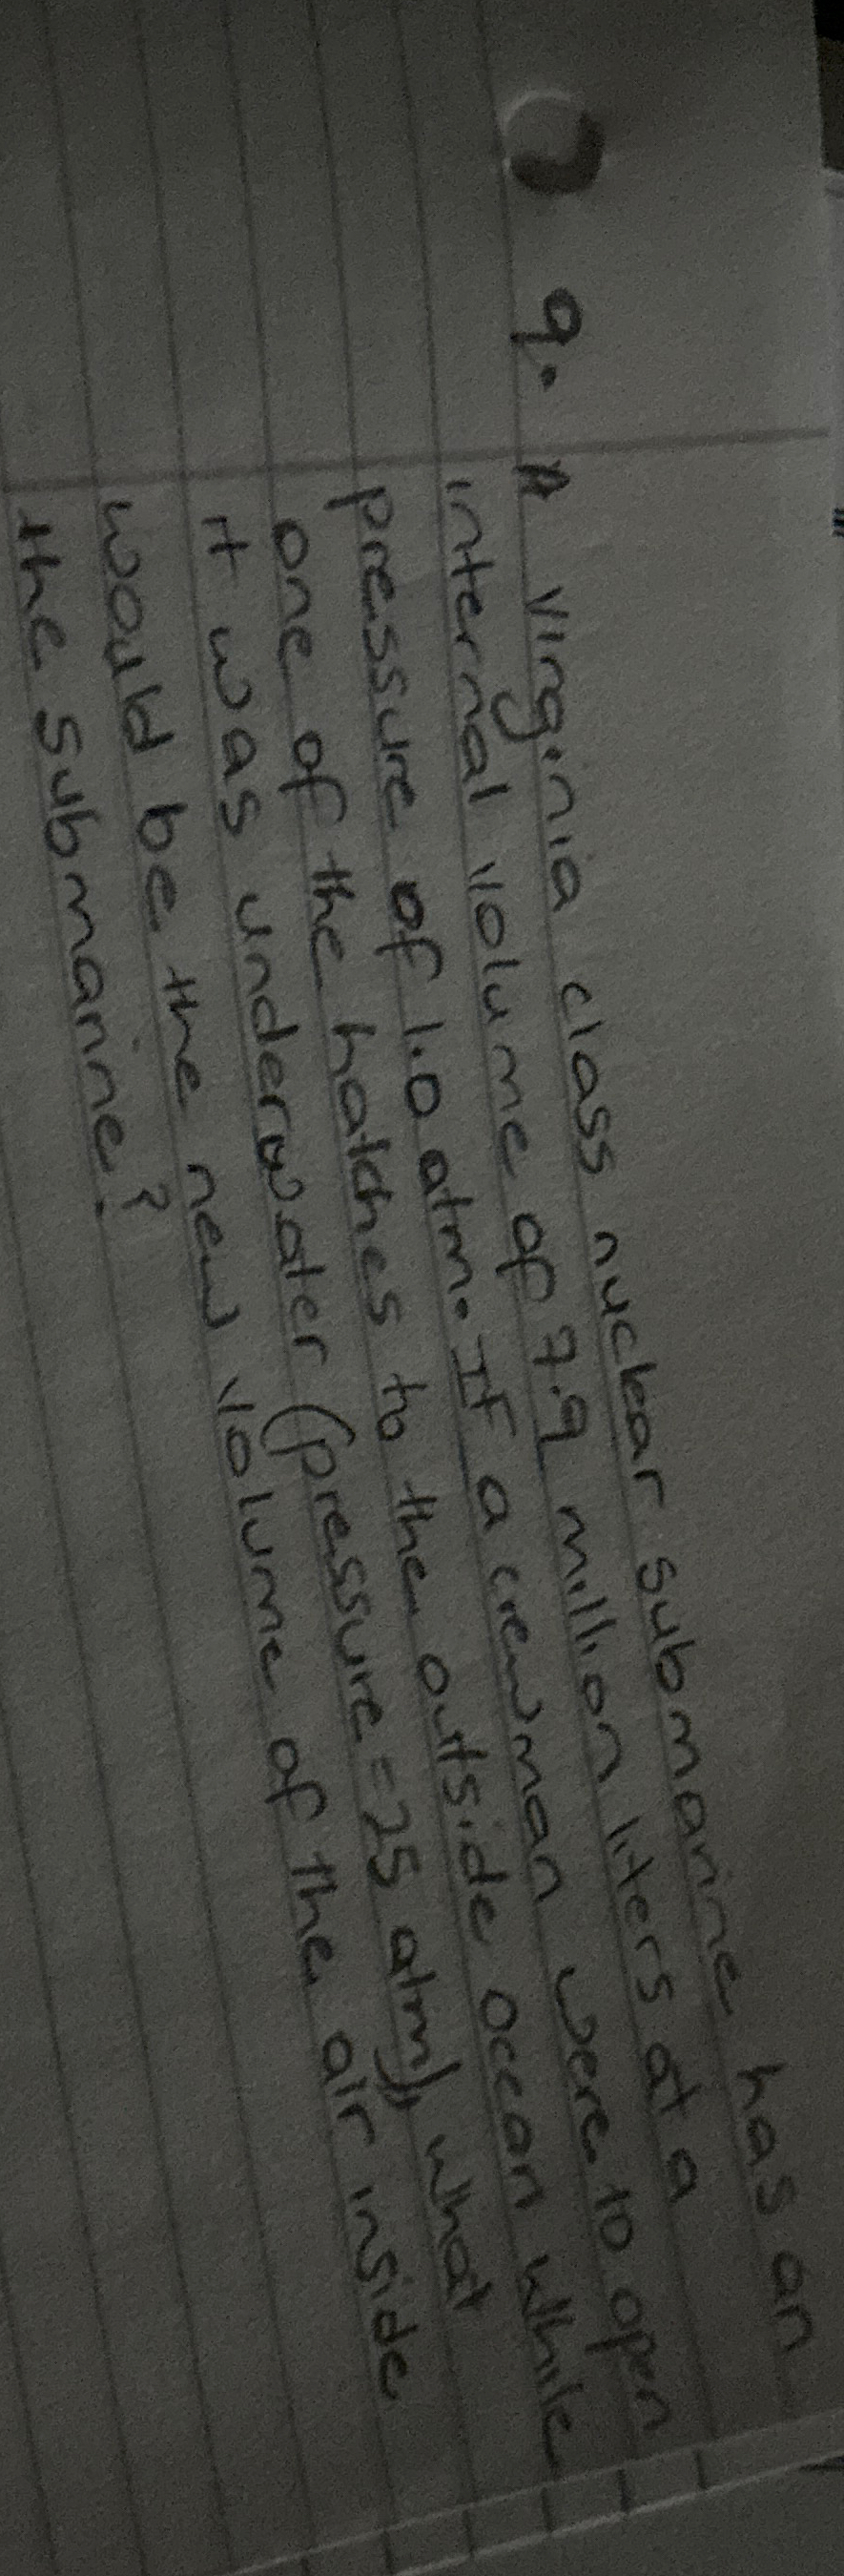 9. A virginia class nuclear submarine has an
internal volume of 7.9 million liters at a
pressure of 1.0 atm. If a crewman were to open
one of the hatches to the outside ocean while
it was underwater (pressure = 25 atm), what
would be the new volume of the air inside
the submarine?